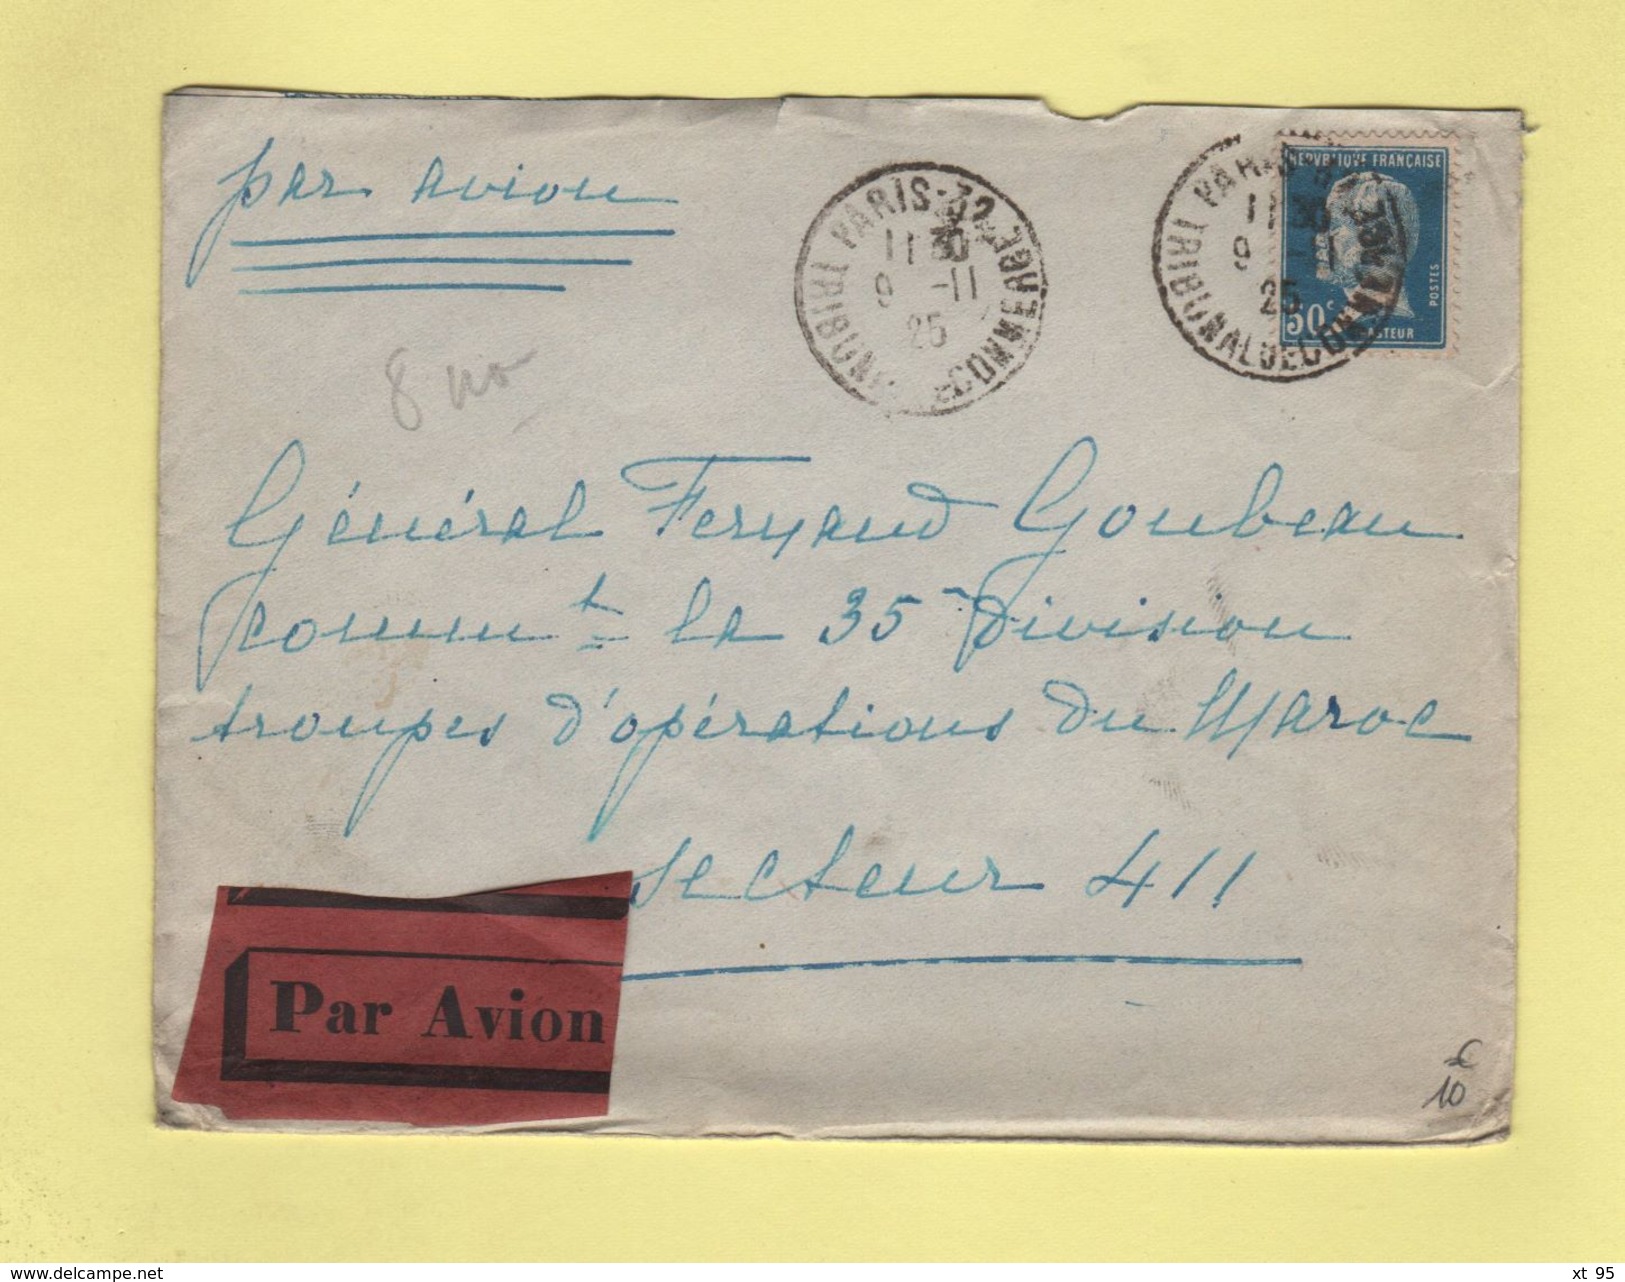 par avion
PARIS-32
11 30
9 -11
25
TRIBUNAL DE COMMERCE
PARIS
11 30
9 -11
25
TRIBUNAL DE COMMERCE
REPVBLIQVE FRANÇAISE
POSTES
50c
PASTEUR
8 no
Général Fernand Goubeau
commt la 35 division
troupes d'opérations du Maroc
secteur 411
Par Avion
10
www.delcampe.net
xt 95